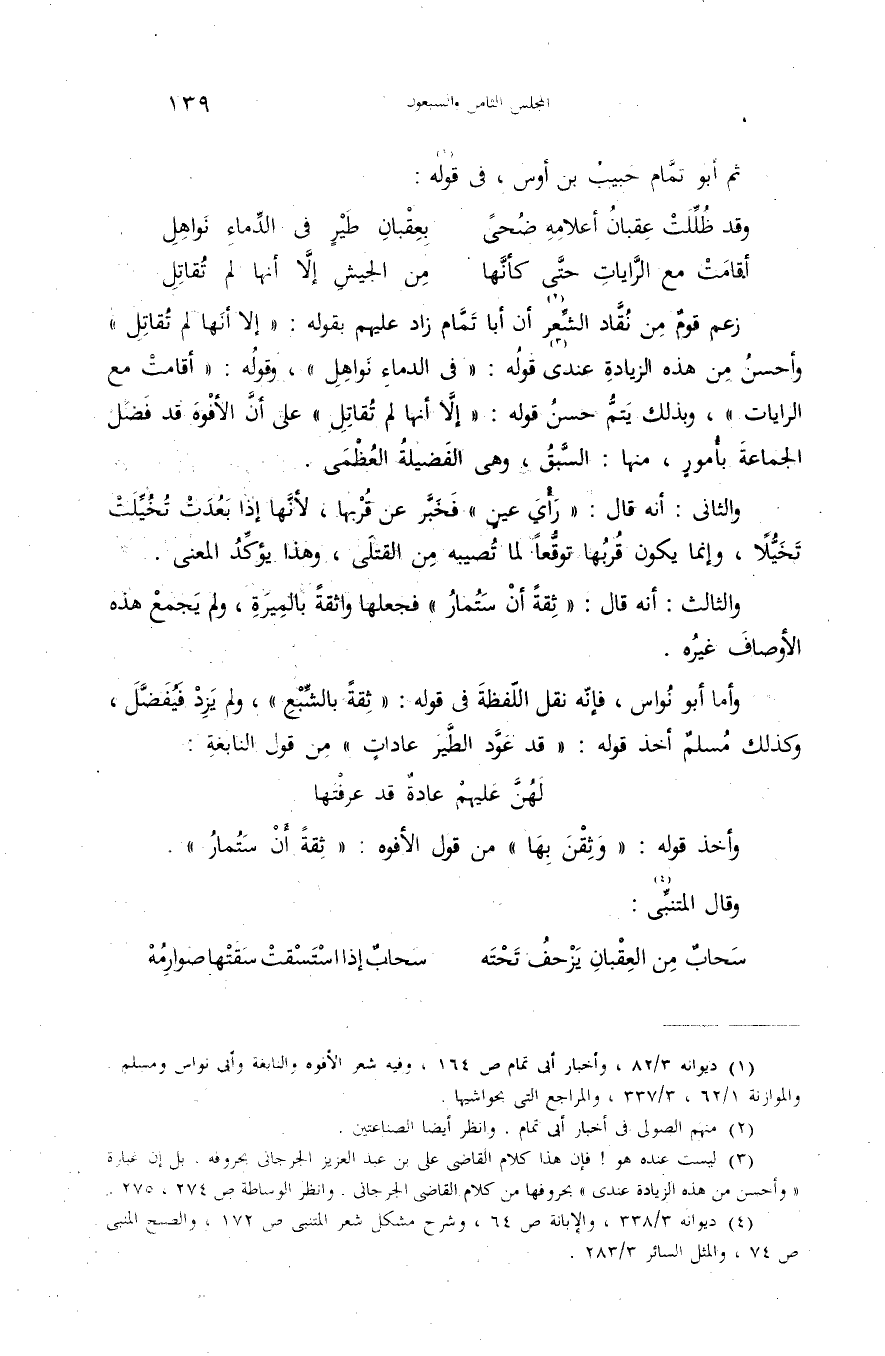 المجلس الثامن والسبعون ١٣٩
ثم أبو تمَّام حَبيبْ بن أوس ، فى قوله (١) :
وقد ظُلِّلَتْ عِقبانُ أعلامِهِ ضُحىً بِعِقْبانِ طَيْرٍ فى الدِّماءِ نَواهِلِ
أقامَتْ مع الرَّاياتِ حتَّى كأنَّها مِن الجيشِ إلَّا أنها لم تُقاتِلِ
زعم قومٌ مِن نُقَّاد الشِّعرِ (٢) أن أبا تَمَّام زاد عليهم بقوله : « إلا أنَها لم تُقاتِل »
وأحسنُ مِن هذه الزيادةِ عندى (٣) قولُه : « فى الدماءِ نَواهِل » ، وقولُه : « أقامتْ مع
الرايات » ، وبذلك يَتمُّ حسنُ قوله : « إلَّا أنها لم تُقاتِلِ » على أنَّ الأفْوهَ قد فَضَلَ
الجماعةَ بأُمورٍ ، منها : السَّبقُ ، وهى الفَضيلةُ العُظْمَى .
والثانى : أنه قال : « رَأْىَ عينٍ » فَخَبَّر عن قُرْبها ، لأنَّها إذا بَعُدَتْ تُخُيِّلَتْ
تَخَيُّلًا ، وإنما يكون قُربُها توقُّعاً لما تُصيبه مِن القتلَى ، وهذا يؤكِّدُ المعنى .
والثالث : أنه قال : « ثِقةً أنْ سَتُمارُ » فجعلها واثقةً بالمِيرَةِ ، ولم يَجمعْ هذه
الأوصافَ غيرُه .
وأما أبو نُواس ، فإنّه نقل اللّفظةَ فى قوله : « ثِقةً بالشِّبْعِ » ، ولم يَزِدْ فَيُفَضَّلَ ،
وكذلك مُسلمٌ أخذ قوله : « قد عَوَّد الطَّيرَ عاداتٍ » مِن قول النابغةِ :
لَهُنَّ عَليهِمْ عادةٌ قد عرفْتَها
وأخذ قوله : « وَثِقْنَ بِهَا » من قول الأفوه : « ثِقةً أَنْ سَتُمارُ » .
وقال المتنبِّى (٤) :
سَحابٌ مِن العِقْبانِ يَزْحفُ تَحْتَه سَحابٌ إذا اسْتَسْقتْ سَقَتْها صَوارِمُهْ
(١) ديوانه ٨٢/٣ ، وأخبار أبى تمام ص ١٦٤ ، وفيه شعر الأفوه والنابغة وأبى نواس ومسلم .
والموازنة ٦٢/١ ، ٣٣٧/٣ ، والمراجع التى بحواشيها .
(٢) منهم الصولى فى أخبار أبى تمام . وانظر أيضا الصناعتين .
(٣) ليست عنده هو ! فإن هذا كلام القاضى على بن عبد العزيز الجرجانى بحروفه . بل إن عبارة
« وأحسن من هذه الزيادة عندى » بحروفها من كلام القاضى الجرجانى . وانظر الوساطة ص ٢٧٤ ، ٢٧٥ .
(٤) ديوانه ٣٣٨/٣ ، والإبانة ص ٦٤ ، وشرح مشكل شعر المتنبى ص ١٧٢ ، والصبح المنبى
ص ٧٤ ، والمثل السائر ٢٨٣/٣ .